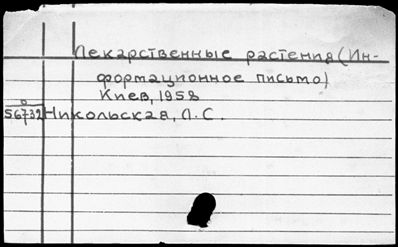 Лекарственные растения (Ин-
формационное письмо)
Киев, 1958
о
56732 Никольская, Л.С.